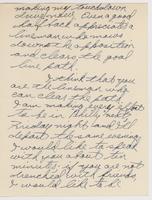 making my touchdown
dive gladly. Even a good
halfback appreciates a
lineman who mows
down the opposition
and clears the goal
line path.
I think that you
are the lineman who
can clear the path.
I am making every effort
to be in Philly next
Friday night, and I'll
depart the same evening.
I would like to speak
with you about ten
minutes if you are not
drenched with friends.
I would like to be